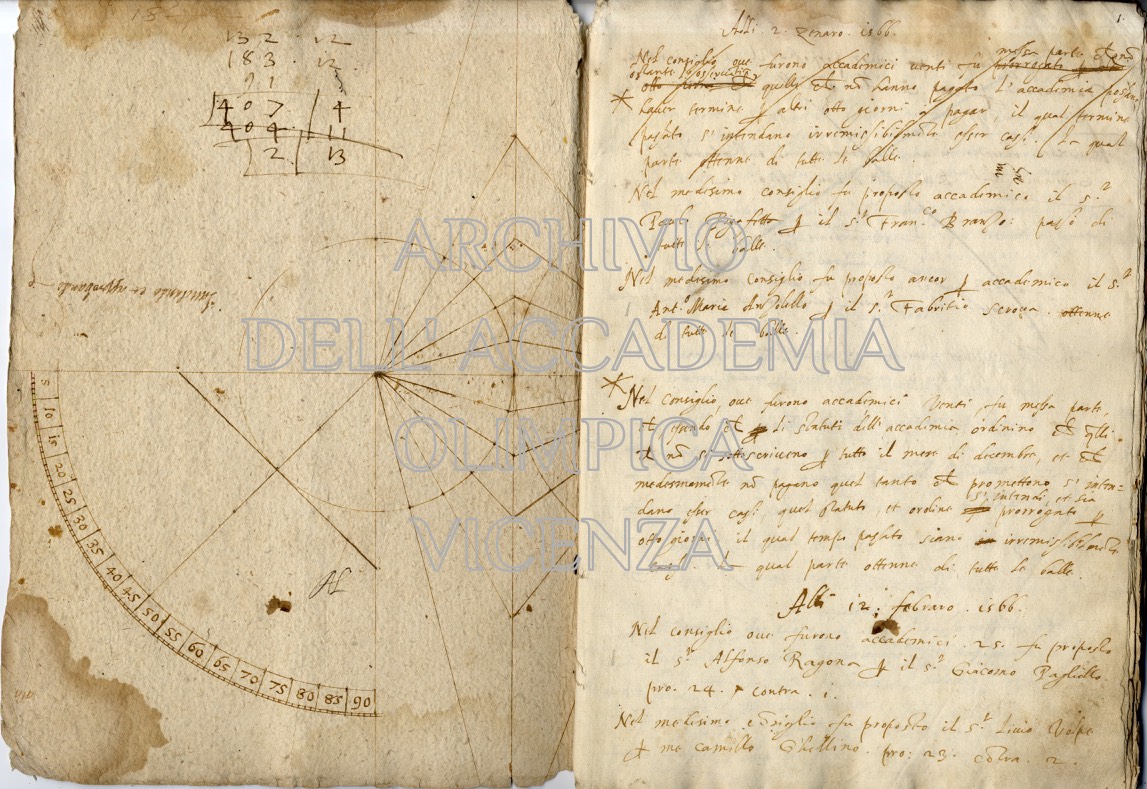 132 . 12
183 . 12
91
407 | 4
404 | 11
2 | 13
5 10 15 20 25 30 35 40 45 50 55 60 65 70 75 80 85 90
ARCHIVIO
DELL'ACCADEMIA
OLIMPICA
VICENZA
1.
Adi 2. Zenaro. 1566.
Nel consiglio, oue furono accademici uenti fu messa parte
quelli nõ hanno pagato l'accademia possano
hauer termine altri otto giorni à pagar, il qual termine
passato s'intendano irremissibilmente esser cassi. La qual
parte ottenne di tutte le balle.
Nel medesimo consiglio fu proposto accademico il s.r
il s.r Fran.co Branzo: passò di
tutte le balle.
Nel medesimo consiglio fu proposto ancor p accademico il s.r
Ant.o Maria Anzolello p il s.r Fabritio Scroça. ottenne
di tutte le balle.
Nel consiglio, oue furono accademici Venti, fu messa parte,
li statuti dell'accademia ordinino
nõ si sottoscriueno p tutto il mese di decembre, et
nõ pagano quel tanto promettono s'inten=
dano esser cassi. quel statuto, et ordine s'intendi, et sia prorogato p
otto giorni il qual tempo passato siano irremissibilmente
qual parte ottenne di tutte le balle.
Adi 12. febraro. 1566.
Nel consiglio oue furono accademici. 25. fu proposto
il s.r Alfonso Ragona p il s.r Giacomo Pagliello.
pro. 24. contra. 1.
Nel medesimo cõsiglio fu proposto il s.r Liuio Volpe
p me Camillo Ghellino. pro: 23. cõtra. 2.